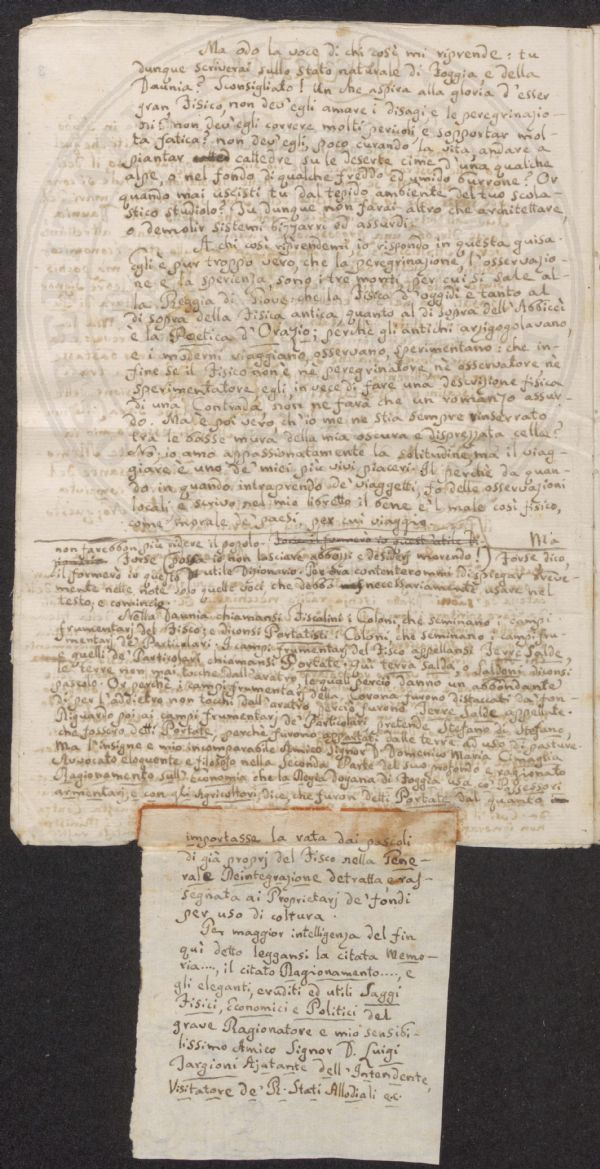 Ma odo la voce di chi così mi riprende: tu
dunque scriverai sullo stato naturale di Foggia, e della
Daunia? Sconsigliato! Un che aspira alla gloria d'esser
gran Fisico, non dev'egli amare i disagi e le peregrinazio-
ni? non dev'egli correre molti pericoli e sopportar mol-
ta fatica? non dev'egli, poco curando la vita, andare a
piantar cattedre su le deserte cime d'una qualche
alpe, o nel fondo di qualche freddo ed umido burrone? Or
quando mai uscisti tu dal tepido ambiente del tuo scola-
stico studiolo? Tu dunque non farai altro che architettare,
o demolir sistemi bizzarri ed assurdi.
A chi così riprendemi, io rispondo in questa guisa.
Egli è pur troppo vero, che la peregrinazione, l'osservazio-
ne e la sperienza, sono i tre monti, per cui si sale al-
la Reggia di Giove: che la Fisica d'oggidì è tanto al
di sopra della Fisica antica, quanto al di sopra dell'Abbicci
è la Poetica d'Orazio; perchè gli antichi arzigogolavano,
e i moderni viaggiano, osservano, sperimentano: che in-
fine se il Fisico non è nè peregrinatore, nè osservatore nè
sperimentatore egli, in vece di fare una descrizione fisica
di una Contrada, non ne farà che un romanzo assur-
do. Ma è poi vero, ch'io me ne stia sempre rinserrato
tra le basse mura della mia oscura e disprezzata cella?
No; io amo appassionatamente la solitudine, ma il viag-
giare è uno de' miei più vivi piaceri. Il perchè da quan-
do in quando intraprendo de' viaggetti, fo delle osservazioni
locali e scrivo nel mio libretto il bene e 'l male così fisico,
come morale de' paesi, per cui viaggio.
Ma
non farebbon più ridere il popolo. Forse il formerò io quest'utile
Forse (possa io non lasciare abbozzi e desiderj morendo!) Forse dico,
il formerò io questo utile Dizionario. Per ora contenterommi di spiegar breve-
mente nelle note solo quelle voci che debbo necessariamente usare nel
testo; e comincio.
Nella Daunia chiamansi Fiscalini i Coloni, che seminano i campi
frumentarj del Fisco; e diconsi Portatisti i Coloni, che seminano i campi fru-
mentarj de' Particolari. I campi frumentarj del Fisco appellansi Terre Salde,
e quelli de' Particolari chiamansi Portate. Qui terra salda, o Saldoni diconsi
le terre non mai tocche dall'aratro, le quali perciò danno un abbondante
pascolo. Or perchè i campi frumentarj della Corona furono distaccati da fon-
di per l'addietro non tocchi dall'aratro, perciò furono Terre Salde appellate.
Riguardo poi ai campi frumentarj de' Particolari pretende Stefano di Stefano,
che fossero detti Portate, perchè furono appartati dalle terre ad uso di pasture.
Ma l'insigne e mio incomparabile Amico Signor D. Domenico Maria Cimaglia
Avvocato eloquente e filosofo nella Seconda Parte del suo profondo e ragionato
Ragionamento sull'Economia che la Regia Dogana di Foggia usa co' Possessori
armentarj, e con gli Agricoltori; dice, che furon detti Portate dal quanto
importasse la rata dai pascoli
di già proprj del Fisco nella Gene-
rale Reintegrazione detratta e ras-
segnata ai Proprietarj de' fondi
per uso di coltura.
Per maggior intelligenza del fin
quì detto leggansi la citata Memo-
ria...., il citato Ragionamento...., e
gli eleganti, eruditi ed utili Saggi
Fisici, Economici e Politici del
grave Ragionatore e mio sensibi-
lissimo Amico Signor D. Luigi
Targioni Ajutante dell'Intendente,
Visitatore de' R. Stati Allodiali ec.